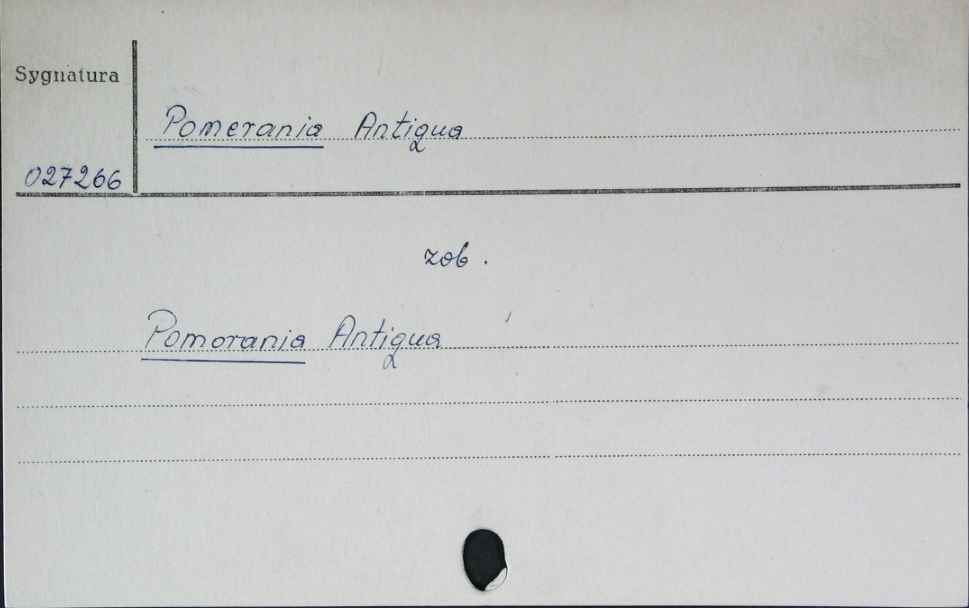 Sygnatura
Pomerania Antiqua
027266
zob.
Pomorania Antiqua